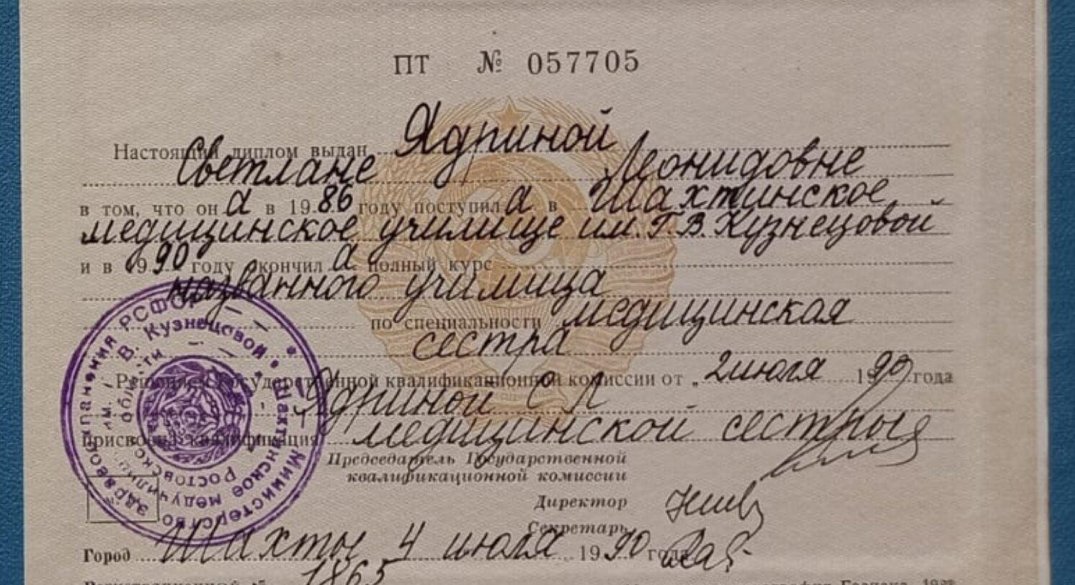 ПТ № 057705
Настоящий диплом выдан Ядриной
Светлане Леонидовне
в том, что она в 1986 году поступила в Шахтинское
медицинское училище им. Г.В. Кузнецовой
и в 1990 году окончила полный курс
названного училища
по специальности медицинская
сестра
Решением Государственной квалификационной комиссии от „2 июля 1990 года
Ядриной С Л
присвоена квалификация медицинской сестры
Председатель Государственной
квалификационной комиссии
Директор
Секретарь
Город Шахты 4 июля 1990 года
Регистрационный № 1865
Министерство здравоохранения РСФСР
Шахтинское медучилище им. Г. В. Кузнецовой
Ростовской области